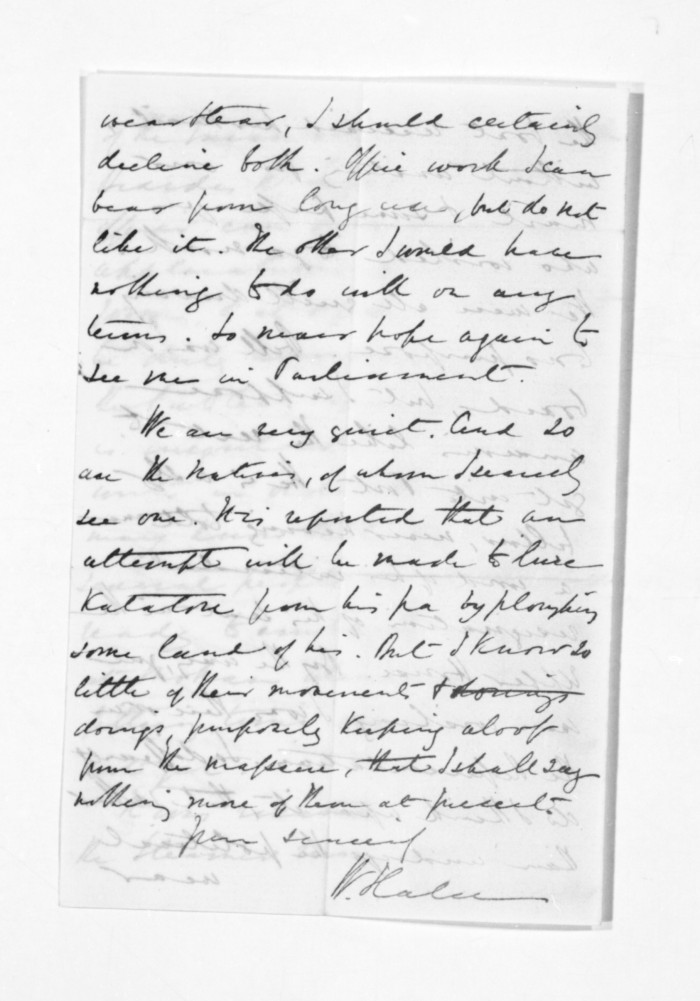 wear & tear, I should certainly
decline both. Office work I can
bear from long use, but do not
like it. The other I would have
nothing to do with on any
terms. So never hope again to
see me in Parliament.
We are very quiet. And so
are the Natives, of whom I scarcely
see one. It is reported that an
attempt will be made to lure
Katatore from his pa by ploughing
some land of his. But I know so
little of their movements & doings
doings, purposely keeping aloof
from the massacre, that I shall say
nothing more of them at present.
Yours sincerely
W. Halse
near